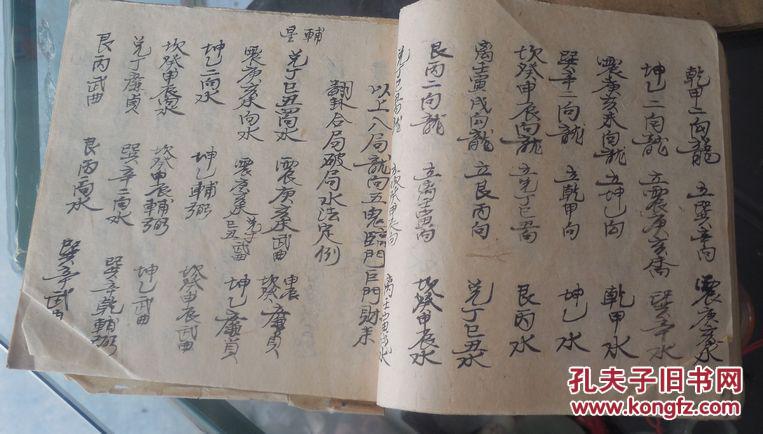 乾甲二向龍 立巽辛向 震庚亥未水
坤乙二向龍 立震庚亥向 巽辛水
震庚亥未向龍 立坤乙向 乾甲水
巽辛二向龍 立乾甲向 坤乙水
坎癸申辰向龍 立兌丁巳丑向 艮丙水
離壬寅戌向龍 立艮丙向 兌丁巳丑水
艮丙二向龍 立离壬寅向 坎癸申辰水
兌丁巳丑龍 立坎癸申辰向 离壬寅戌水
以上八局龍向五鬼臨門巨門財未
翻卦合局破局水法定例
輔星
兌丁巳丑向水 震庚亥未武曲 廉貞
震庚亥未向水 兌丁巳丑武曲 坎癸廉貞
坤乙二向水 坤乙輔弼 坎癸申辰武曲
坎癸申辰向水 坎癸申辰輔弼 坤乙武曲
兌丁廉貞 巽辛二向水 巽辛乾輔弼
艮丙武曲 艮丙向水 巽辛武曲
孔夫子旧书网
www.kongfz.com